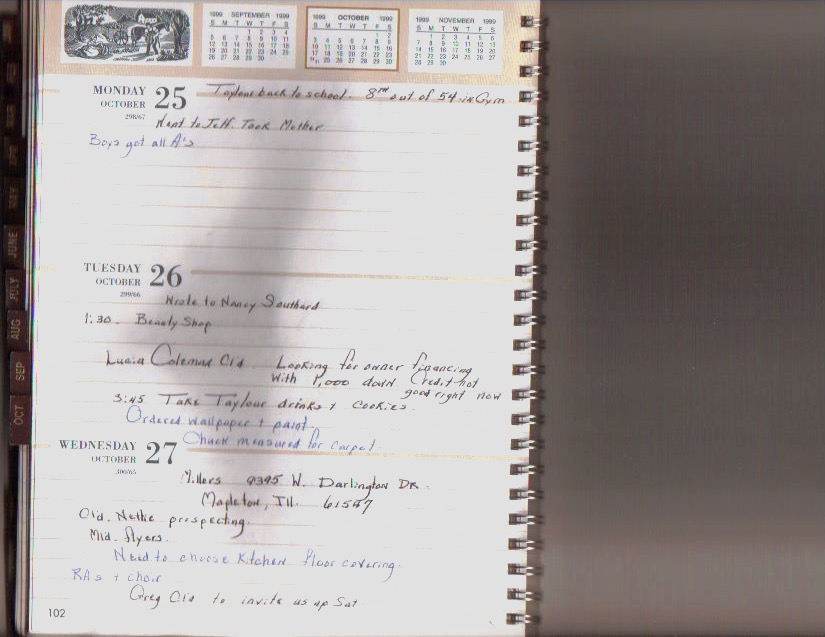 1999 SEPTEMBER 1999
S M T W T F S
1 2 3 4
5 6 7 8 9 10 11
12 13 14 15 16 17 18
19 20 21 22 23 24 25
26 27 28 29 30
1999 OCTOBER 1999
S M T W T F S
1 2
3 4 5 6 7 8 9
10 11 12 13 14 15 16
17 18 19 20 21 22 23
24/31 25 26 27 28 29 30
1999 NOVEMBER 1999
S M T W T F S
1 2 3 4 5 6
7 8 9 10 11 12 13
14 15 16 17 18 19 20
21 22 23 24 25 26 27
28 29 30
MONDAY 25 Taylour back to school. 8th out of 54 in Gym
OCTOBER
298/67
Went to Jeff. Took Mother
Boys got all A's
TUESDAY 26
OCTOBER
299/66
Wrote to Nancy Southard
1:30. Beauty Shop
Lucia Coleman Cld Looking for owner financing
With 1,000 down Credit not
good right now
3:45 Take Taylour drinks + cookies.
Ordered wallpaper + paint.
Chuck measured for carpet.
WEDNESDAY 27
OCTOBER
300/65
Millers 9395 W. Darlington DR.
Mapleton, Ill. 61547
Cld. Nettie prospecting.
Mid. flyers.
Need to choose Kitchen floor covering.
RAs + choir
Greg Cld to invite us up Sat
102
JUNE
JULY
AUG
SEP
OCT